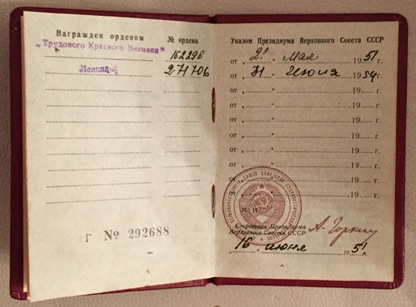 Награжден орденом
№ ордена
"Трудового Красного Знамени"
162296
Ленина
271706
Г № 292688
Указом Президиума Верховного Совета СССР
от „ 2. " Мая 1951 г.
от „ 31 " Июля 1954 г.
от „ " 195 г.
от „ " 195 г.
от „ " 195 г.
от „ " 195 г.
от „ " 195 г.
от „ " 195 г.
от „ " 195 г.
Секретарь Президиума
Верховного Совета СССР
А. Горкин
16 июня 1951